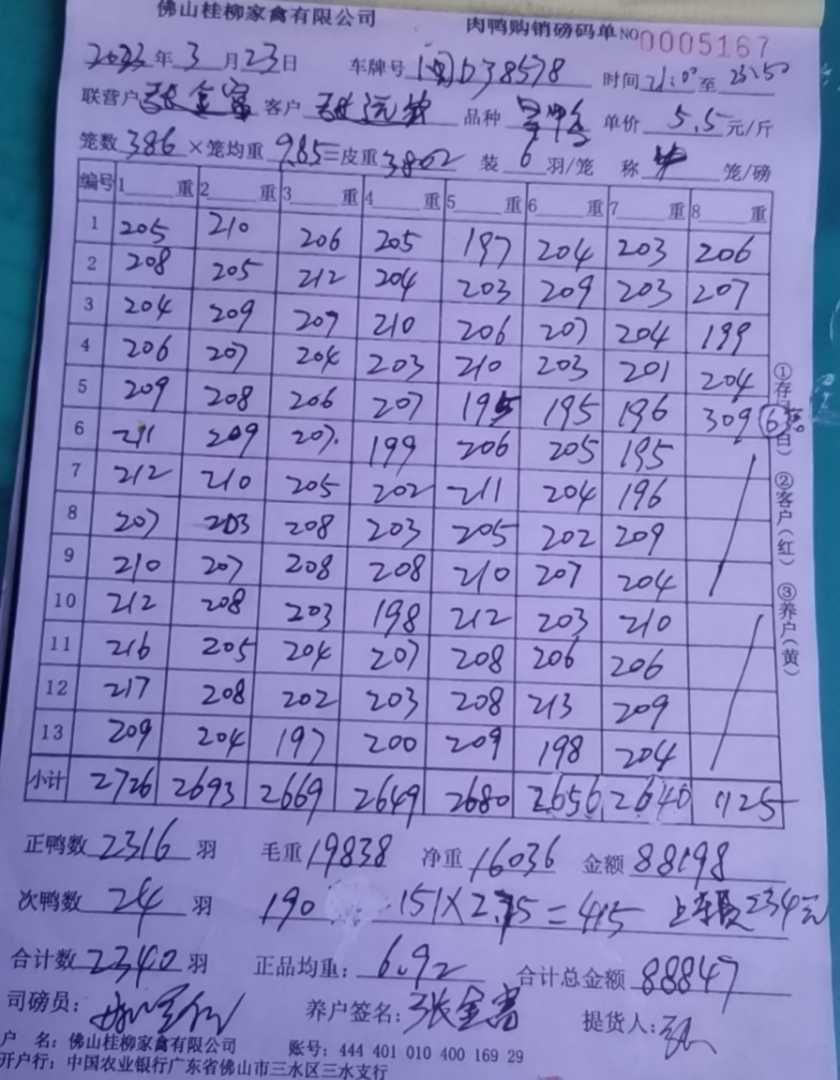 佛山桂柳家禽有限公司 肉鸭购销磅码单 NO 0005167
2023年3月23日 车牌号 闽D38578 时间 21:00 至 23:50
联营户 张金富 客户 品种 单价 5.5 元/斤
笼数 386 ×笼均重 9.85 =皮重 3802 装 6 羽/笼 称 笼/磅
编号 1 重 2 重 3 重 4 重 5 重 6 重 7 重 8 重
1 205 210 206 205 197 204 203 206
2 208 205 212 204 203 209 203 207
3 204 209 207 210 206 207 204 199
4 206 207 204 203 210 203 201 204
5 209 208 206 207 195 195 196 309 6笼
6 211 209 207. 199 206 205 195
7 212 210 205 202 211 204 196
8 207 203 208 203 205 202 209
9 210 207 208 208 210 207 204
10 212 208 203 198 212 203 210
11 216 205 204 207 208 206 206
12 217 208 202 203 208 213 209
13 209 204 197 200 209 198 204
小计 2726 2693 2669 2649 2680 2656 2640 1125
①存根(白) ②客户(红) ③养户(黄)
正鸭数 2316 羽 毛重 19838 净重 16036 金额 88198
次鸭数 24 羽 190 151×2.75=415 上车费234元
合计数 2340 羽 正品均重: 6.92 合计总金额 88847
司磅员: 养户签名: 张金富 提货人:
户 名: 佛山桂柳家禽有限公司 账号: 444 401 010 400 169 29
开户行: 中国农业银行广东省佛山市三水区三水支行